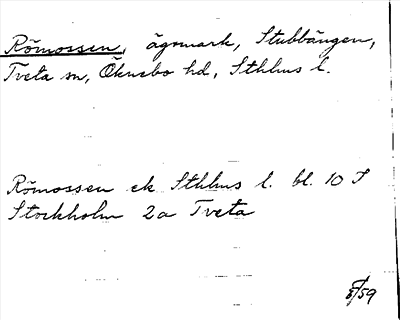 Römossen, ägomark, Stubbängen,
Tveta sn, Öknebo hd, Sthlms l.
Römossen ek Sthlms l. bl. 10 I
Stockholm 2a Tveta